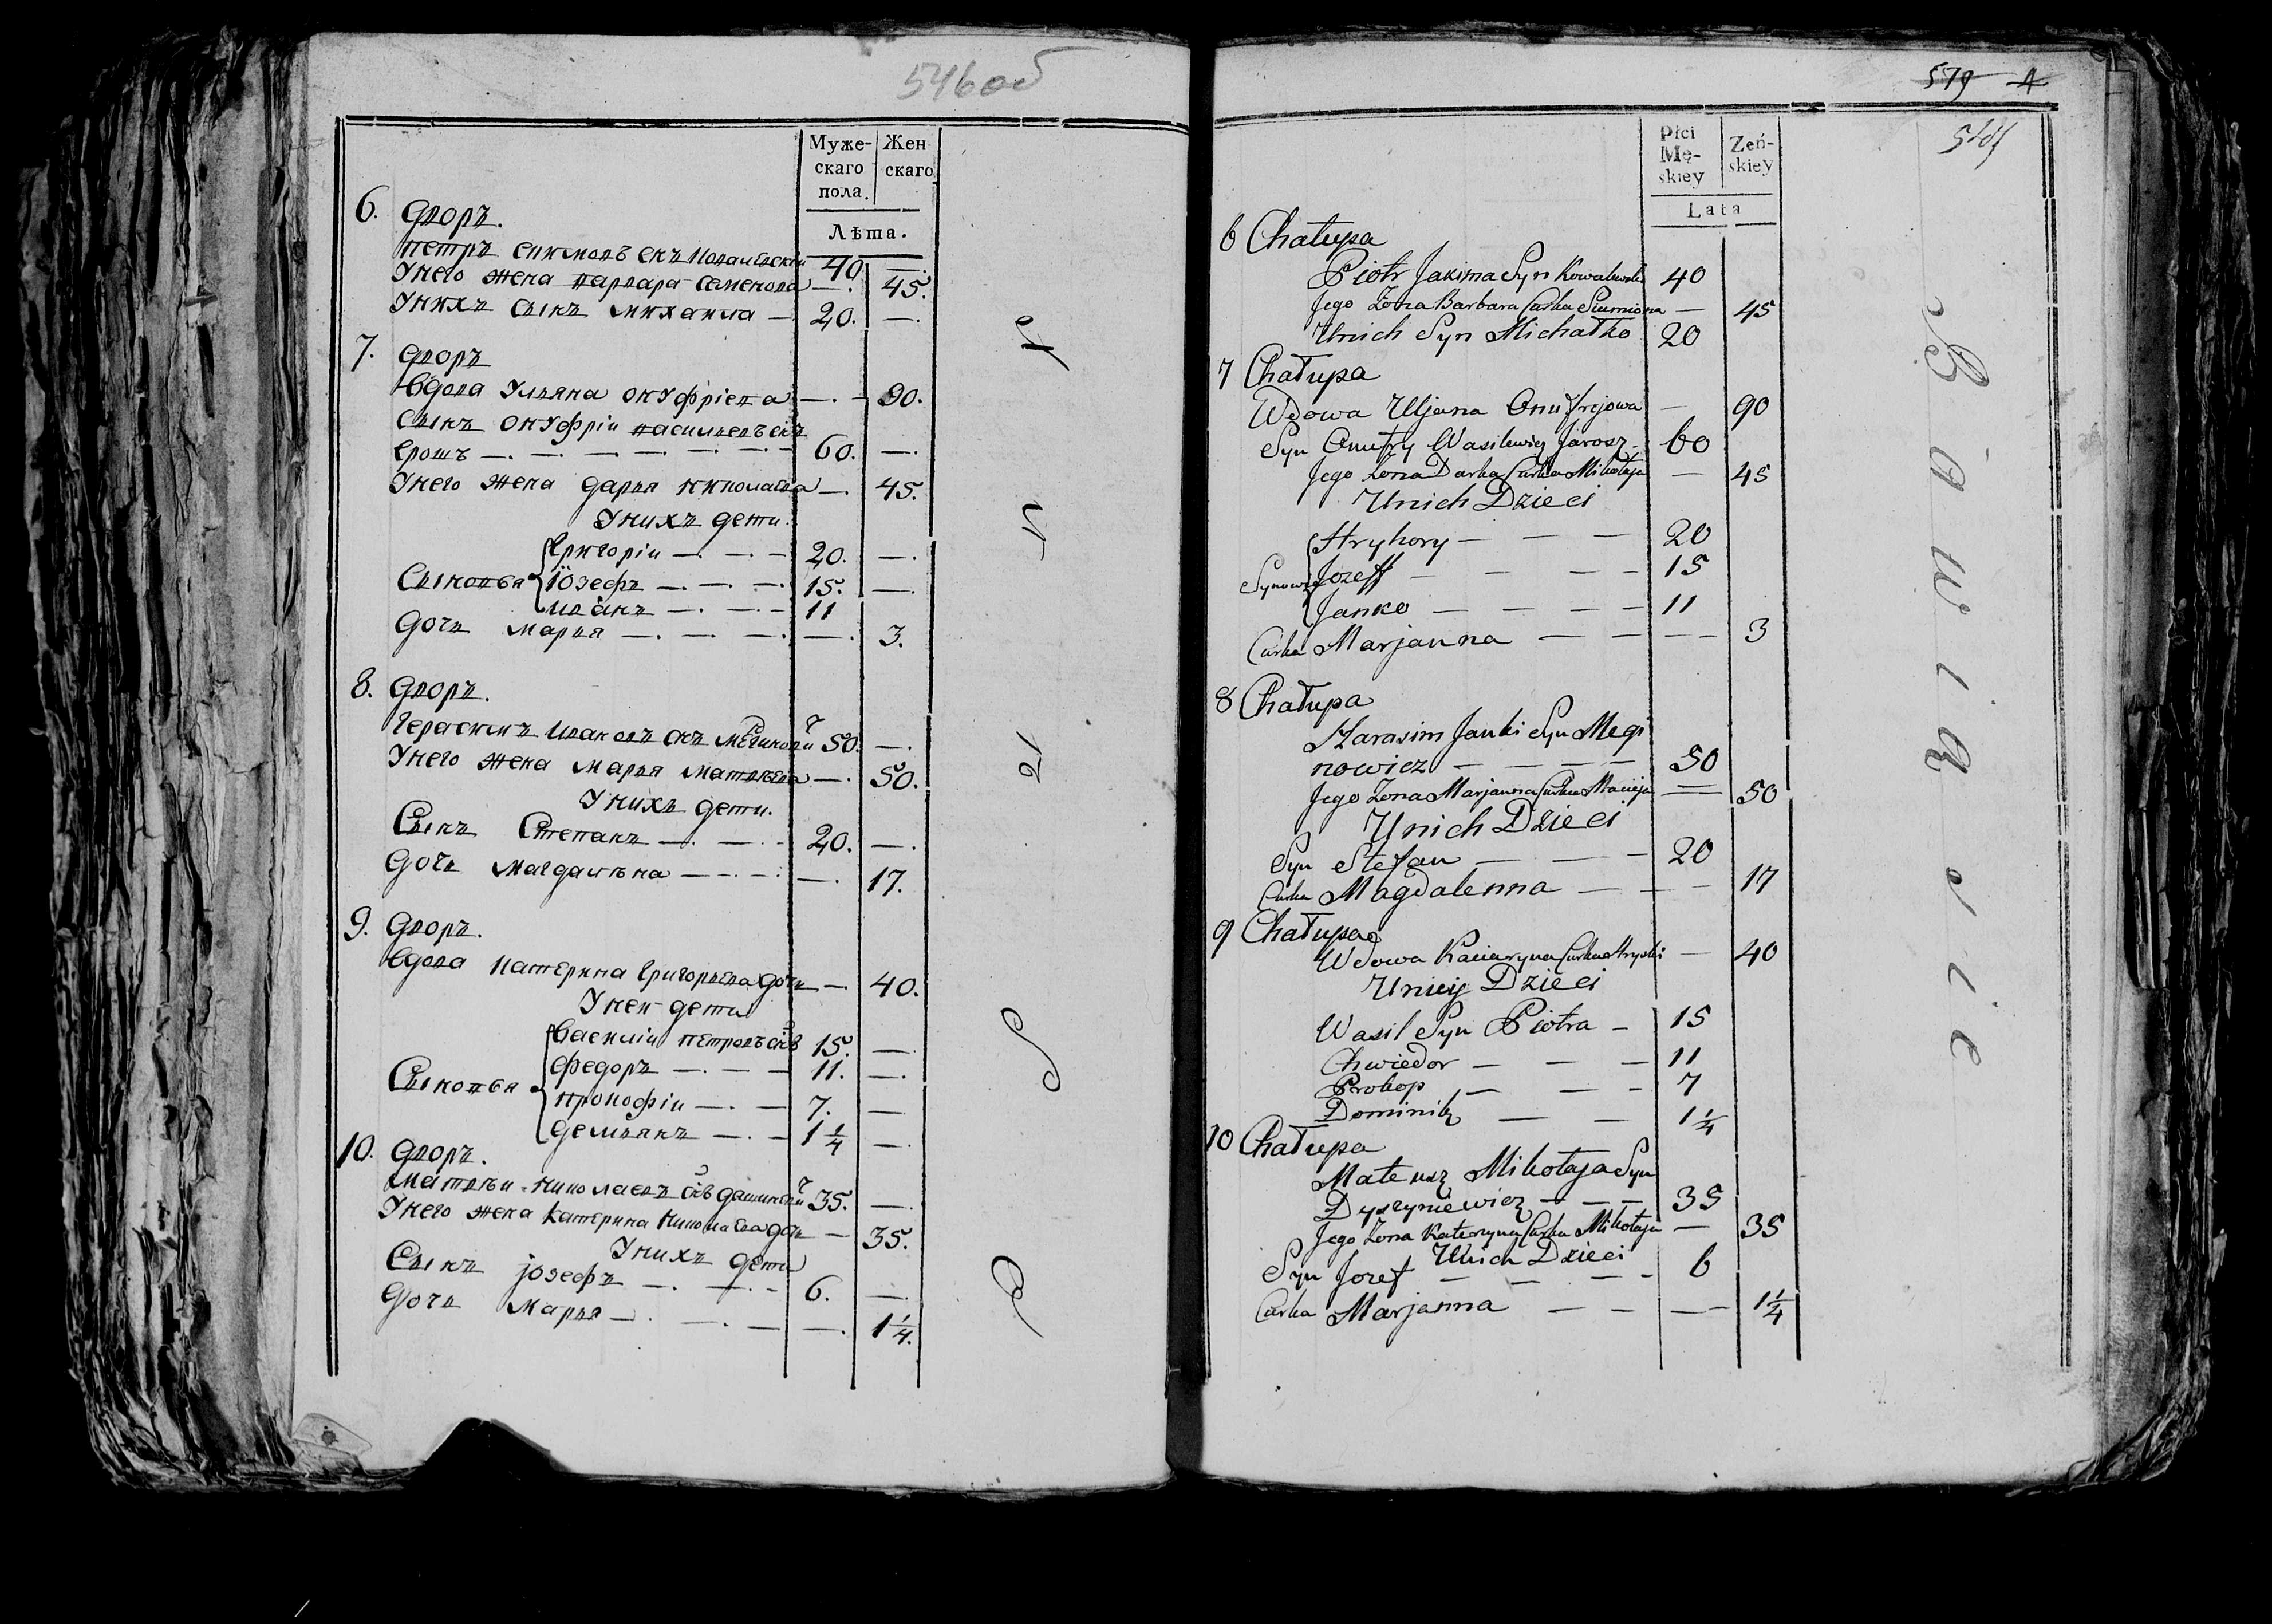 546об
Муже-
скаго
пола.
Жен
скаго
Лѣта.
6. Дворъ.
Петръ Якимовъ снъ Ковалевскій 40. —
У него жена Варвара Семенова —. 45.
У нихъ сынъ Михаила — 20. —.
7. Дворъ
Вдова Ульяна Онуфріева —. — 90.
Сынъ Онуфрій Васильевъ снъ
Ерошъ —. —. —. —. —. —. — 60. —.
У него жена Дарья Николаева —. 45.
У нихъ дети.
Григорій —. —. — 20. —.
Сыновья Юзефъ —. —. —. 15. —.
Иванъ —. —. — 11
Дочь Марья —. —. —. —. 3.
8. Дворъ.
Герасимъ Ивановъ снъ 50. —.
У него жена Марья Матвѣева —. 50.
У нихъ дети.
Сынъ Степанъ —. —. — 20. —.
Дочь Магдалѣна — — —. —. 17.
9. Дворъ.
Вдова Катерина Григорьева дочь — 40.
У неи дети
Василій Петровъ снъ 15. —.
Федоръ —. — — 11. —.
Сыновья Прокофій —. — 7. —
Демьянъ —. — 1 1/4 —.
10. Дворъ.
Матвѣй Николаевъ снъ 35. —.
У него жена Катерина Николаева дочь — 35.
У нихъ дети
Сынъ Јозефъ —. —. — 6. —.
Дочь Марья —. —. — —. 1 1/4.
579 A
Płci
Mę-
skiey
Zeń-
skiey
Lata
6 Chałupa
Piotr Jakima Syn Kowalewski 40
Jego Żona Barbara Curka Siemiona — 45
Unich Syn Michałko 20
7 Chałupa
Wdowa Uljana Onufrejowa — 90
Syn Onufry Wasilewicz Jarosz 60
Jego Żona Darka Curka Mikołaja — 45
Unich Dzieci
Hryhory — — — 20
Synowie Jozeff — — — — 15
Janko — — — — 11
Curka Marjanna — — — — 3
8 Chałupa
Harasim Janki Syn Megi
nowicz — — — — 50
Jego Żona Marjanna Curka Macieja — 50
Unich Dzieci
Syn Stefan — — — 20
Curka Magdalenna — — — 17
9 Chałupa
Wdowa Kaciaryna Curka Hryski — 40
Uniey Dzieci
Wasil Syn Piotra — 15
Chwiedor — — — 11
Prokop — — — 7
Dominik — — 1 1/4
10 Chałupa
Mateusz Mikołaja Syn
Dyszyniewicz — — — 35
Jego Żona Kateryna Curka Mikołaja — 35
Unich Dzieci
Syn Jozef — — — — 6
Curka Marjanna — — — — 1 1/4